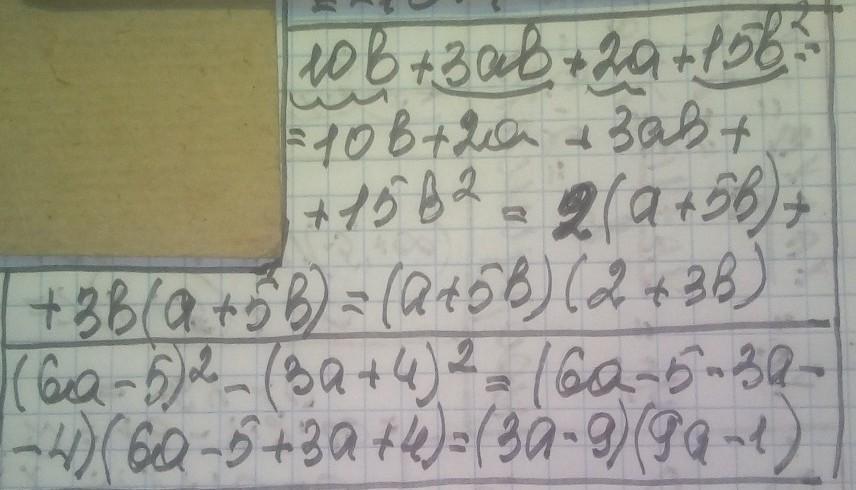 10b+3ab+2a+15b²=
=10b+2a+3ab+
+15b²=2(a+5b)+
+3b(a+5b)=(a+5b)(2+3b)
(6a-5)²-(3a+4)²=(6a-5-3a-
-4)(6a-5+3a+4)=(3a-9)(9a-1)